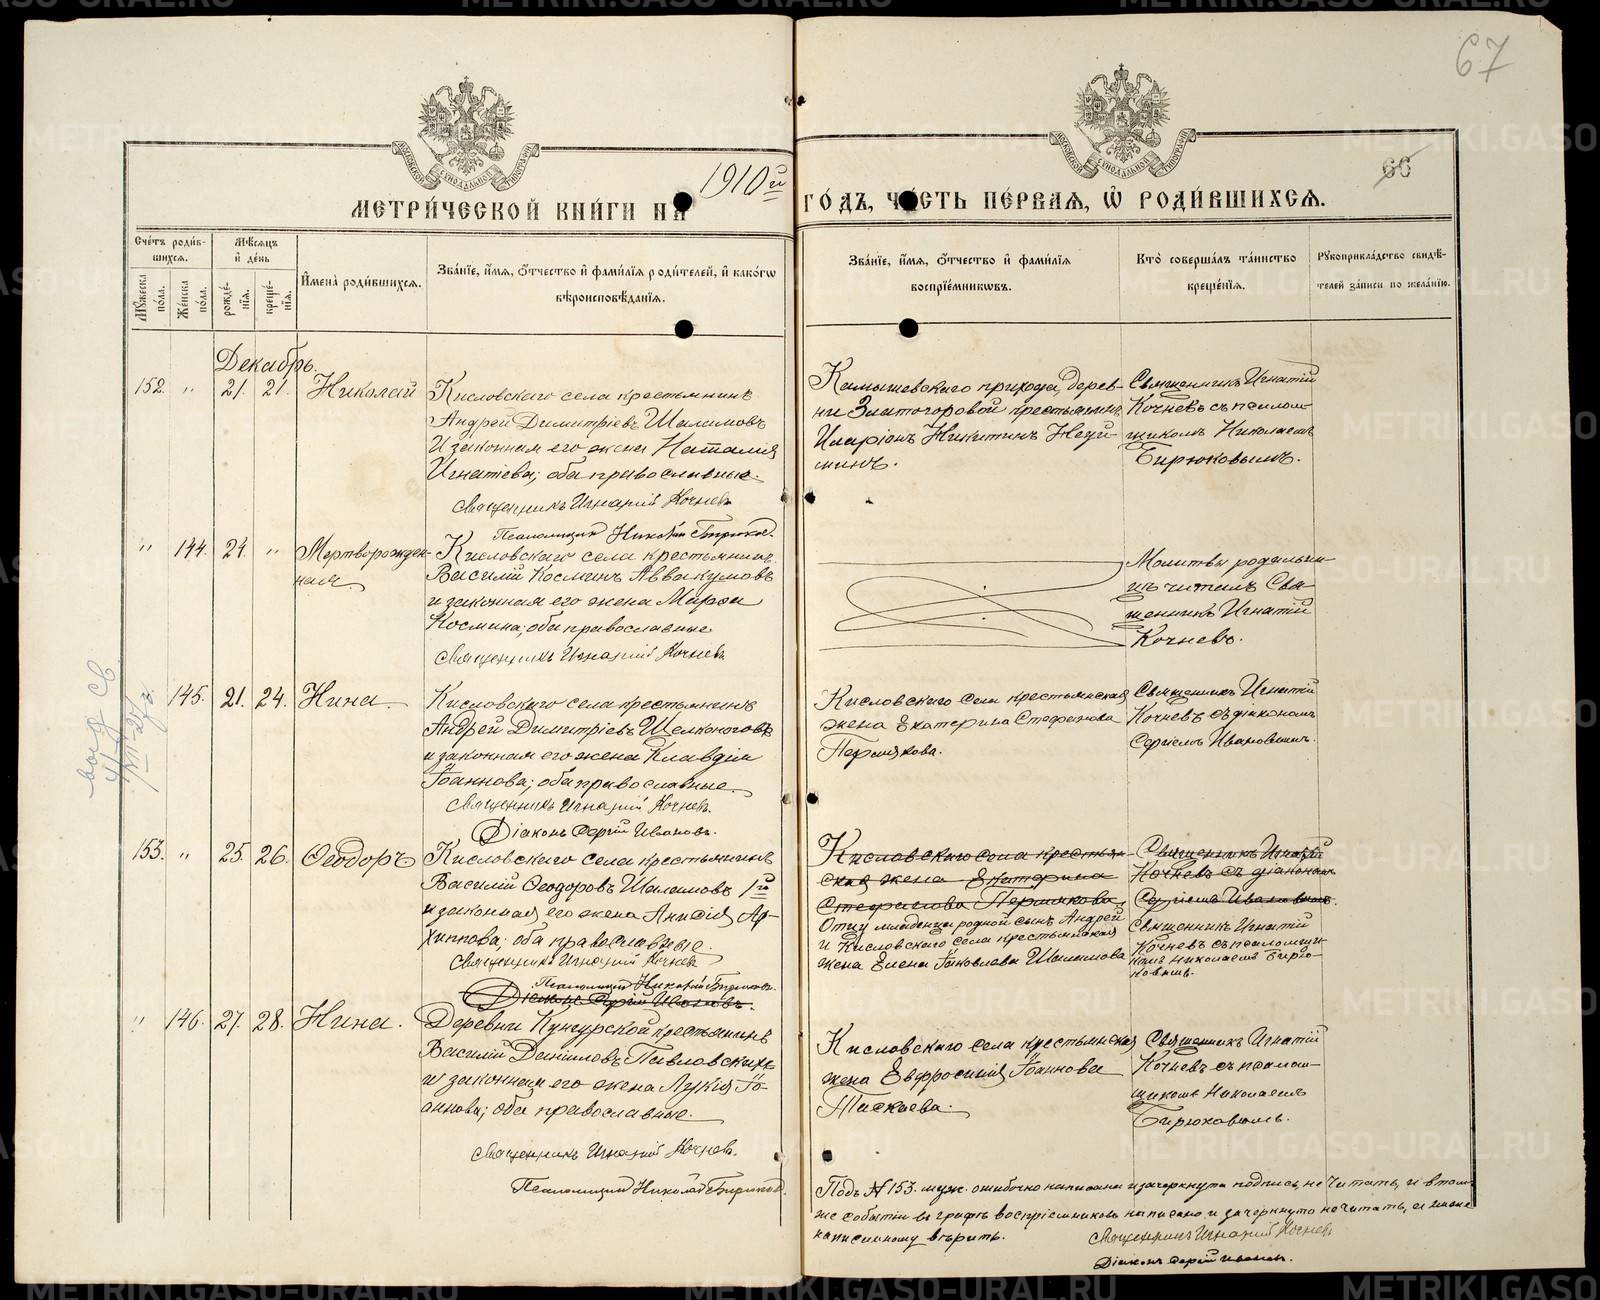 67
66
1910й
МЕТРИ́ЧЕСКОЙ КНИ́ГИ НА
ГО́ДЪ, ЧА́СТЬ ПЕ́РВАЯ, Ѡ҆ РОДИ́ВШИХСЯ.
Сче́тъ роди́в-
шихся.
Мѣ́сяцъ
и҆ де́нь
Му́жеска
по́ла.
Же́нска
по́ла.
рожде́-
нїя.
креще́-
нїя.
И҆мена̀ роди́вшихся.
Зва́нїе, и҆́мя, ѻ҆́тчество и҆ фами́лїя роди́телей, и҆ како́гѡ
вѣроисповѣ́данїя.
Зва́нїе, и҆́мя, ѻ҆́тчество и҆ фами́лїя
воспрїе́мникѡвъ.
Кто̀ соверша́лъ та́инство
креще́нїя.
Рꙋкоприкла́дство свидѣ́-
телей за́писи по жела́нїю.
Декабрь.
152. " 21. 21. Николай
Кисловскаго села крестьянинъ
Андрей Димитріевъ Шаламовъ
и законная его жена Наталія
Игнатіева; оба православные.
Священникъ Игнатій Кочневъ
Псаломщикъ Николай Бирюков.
Камышевскаго прихода, дерев-
ни Златогоровой крестьянинъ
Иларіонъ Никитинъ Неуй-
минъ.
Священникъ Игнатій
Кочневъ съ псалом-
щикомъ Николаемъ
Бирюковымъ.
" 144. 24. " Мертворожден-
ная
Кисловскаго села крестьянинъ
Василій Космичъ Аввакумовъ
и законная его жена Марѳа
Космина; оба православные
Священникъ Игнатій Кочневъ
Молитвы родильни-
цѣ читалъ Свя-
щенникъ Игнатій
Кочневъ.
145. 21. 24. Нина
Кисловскаго села крестьянинъ
Андрей Димитріевъ Щелконоговъ
и законная его жена Клавдія
Іоаннова; оба православные.
Священникъ Игнатій Кочневъ.
Діаконъ Сергій Ивановъ.
Кисловскаго села крестьянская
жена Екатерина Стефанова
Пермякова.
Священникъ Игнатій
Кочневъ съ діакономъ
Сергіемъ Ивановымъ.
153. " 25. 26. Ѳеодоръ
Кисловскаго села крестьянинъ
Василій Ѳеодоровъ Шаламовъ 1й
и законная его жена Анисія Ар-
хиппова; оба православные.
Священникъ Игнатій Кочневъ
Псаломщикъ Николай Бирюков.
Діаконъ Сергій Ивановъ.
Кисловскаго села крестьян-
ская жена Екатерина
Стефанова Пермякова.
Отцу младенца родной сынъ Андрей
и Кисловскаго села крестьянская
жена Елена Іаковлева Шаламова
Священникъ Игнатій
Кочневъ съ діакономъ
Сергіемъ Ивановымъ.
Священникъ Игнатій
Кочневъ съ псаломщи-
комъ Николаемъ Бирю-
ковымъ.
" 146. 27. 28. Нина.
Деревни Кунгурской крестьянинъ
Василій Даниловъ Павловскихъ
и законная его жена Лукія Іо-
аннова; оба православные.
Священникъ Игнатій Кочневъ.
Псаломщикъ Николай Бирюков.
Кисловскаго села крестьянская
жена Евфросинія Іоаннова
Таскаева.
Священникъ Игнатій
Кочневъ съ псалом-
щикомъ Николаемъ
Бирюковымъ.
Подъ № 153. муж. ошибочно написана и зачеркнута подпись, не читать, и в томъ
же событіи въ графѣ воспріемниковъ написано и зачеркнуто не читать, а иначе
написанному вѣрить.
Священникъ Игнатій Кочневъ
Діаконъ Сергій Ивановъ.
METRIKI.GASO-URAL.RU